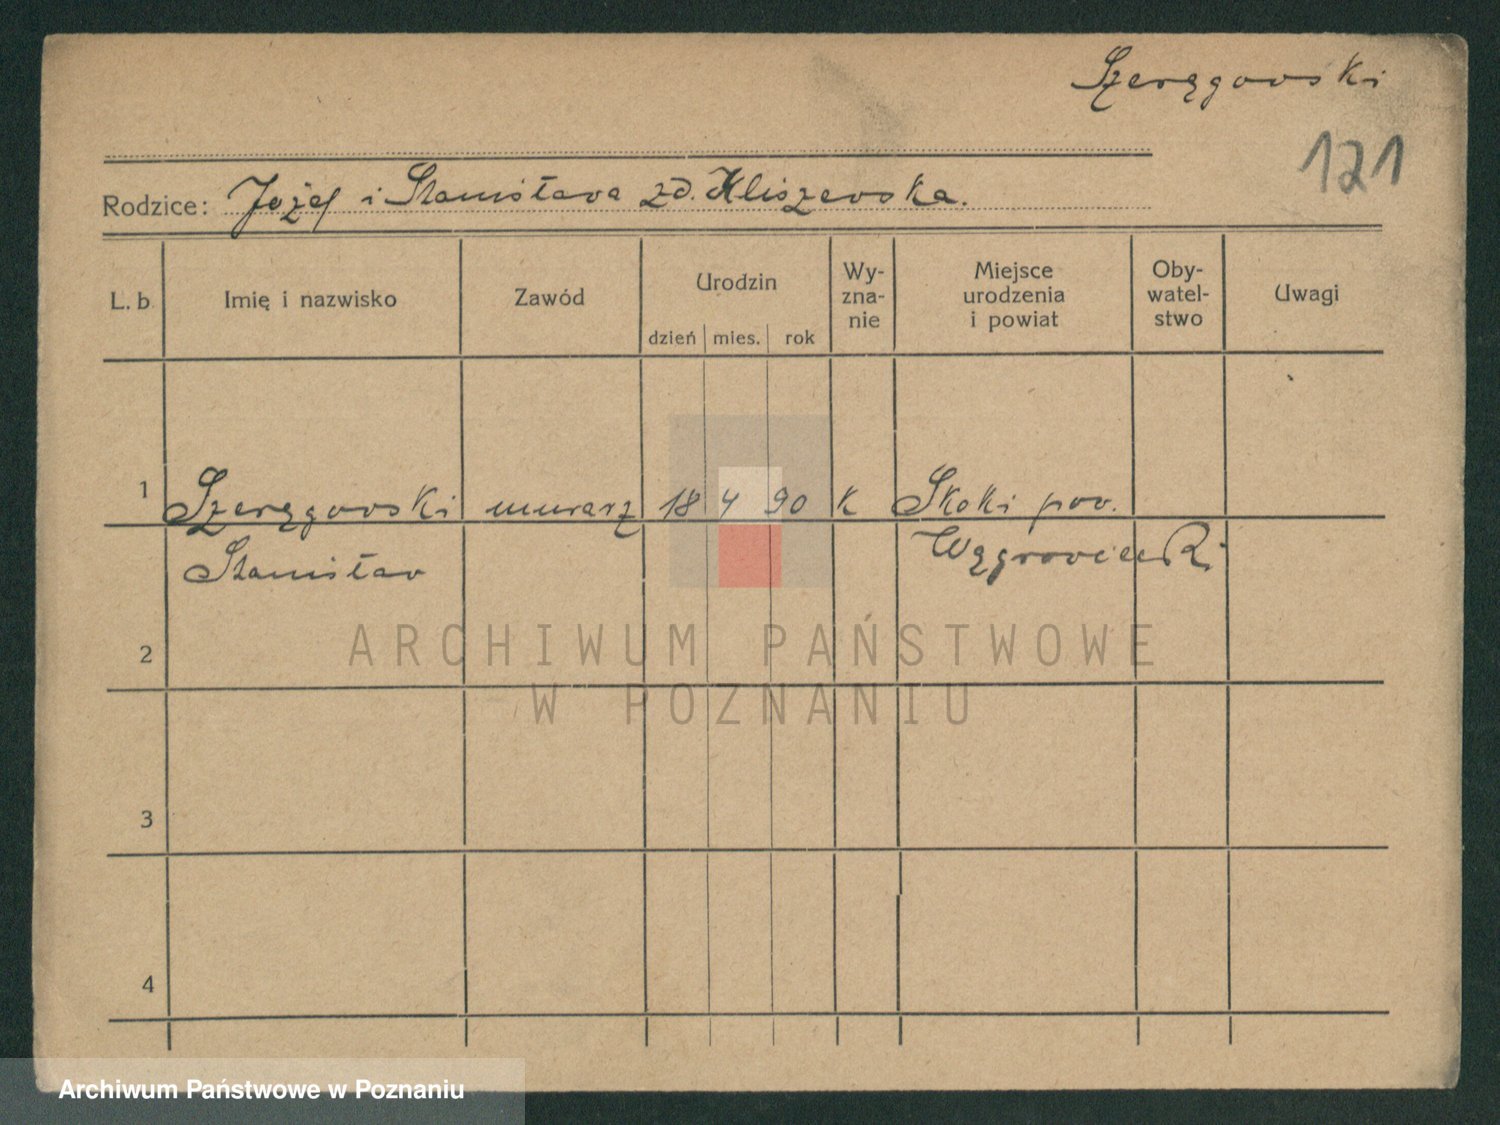 Szeręgowski
121
Rodzice: Józef i Stanisława zd. Kliszewska.
L. b. Imię i nazwisko Zawód Urodzin dzień mies. rok Wy-zna-nie Miejsce urodzenia i powiat Oby-watel-stwo Uwagi
1 Szeręgowski murarz 18 4 90 k Skoki pow.
Stanisław Wągrowiecki
2
3
4
ARCHIWUM PAŃSTWOWE
W POZNANIU
Archiwum Państwowe w Poznaniu